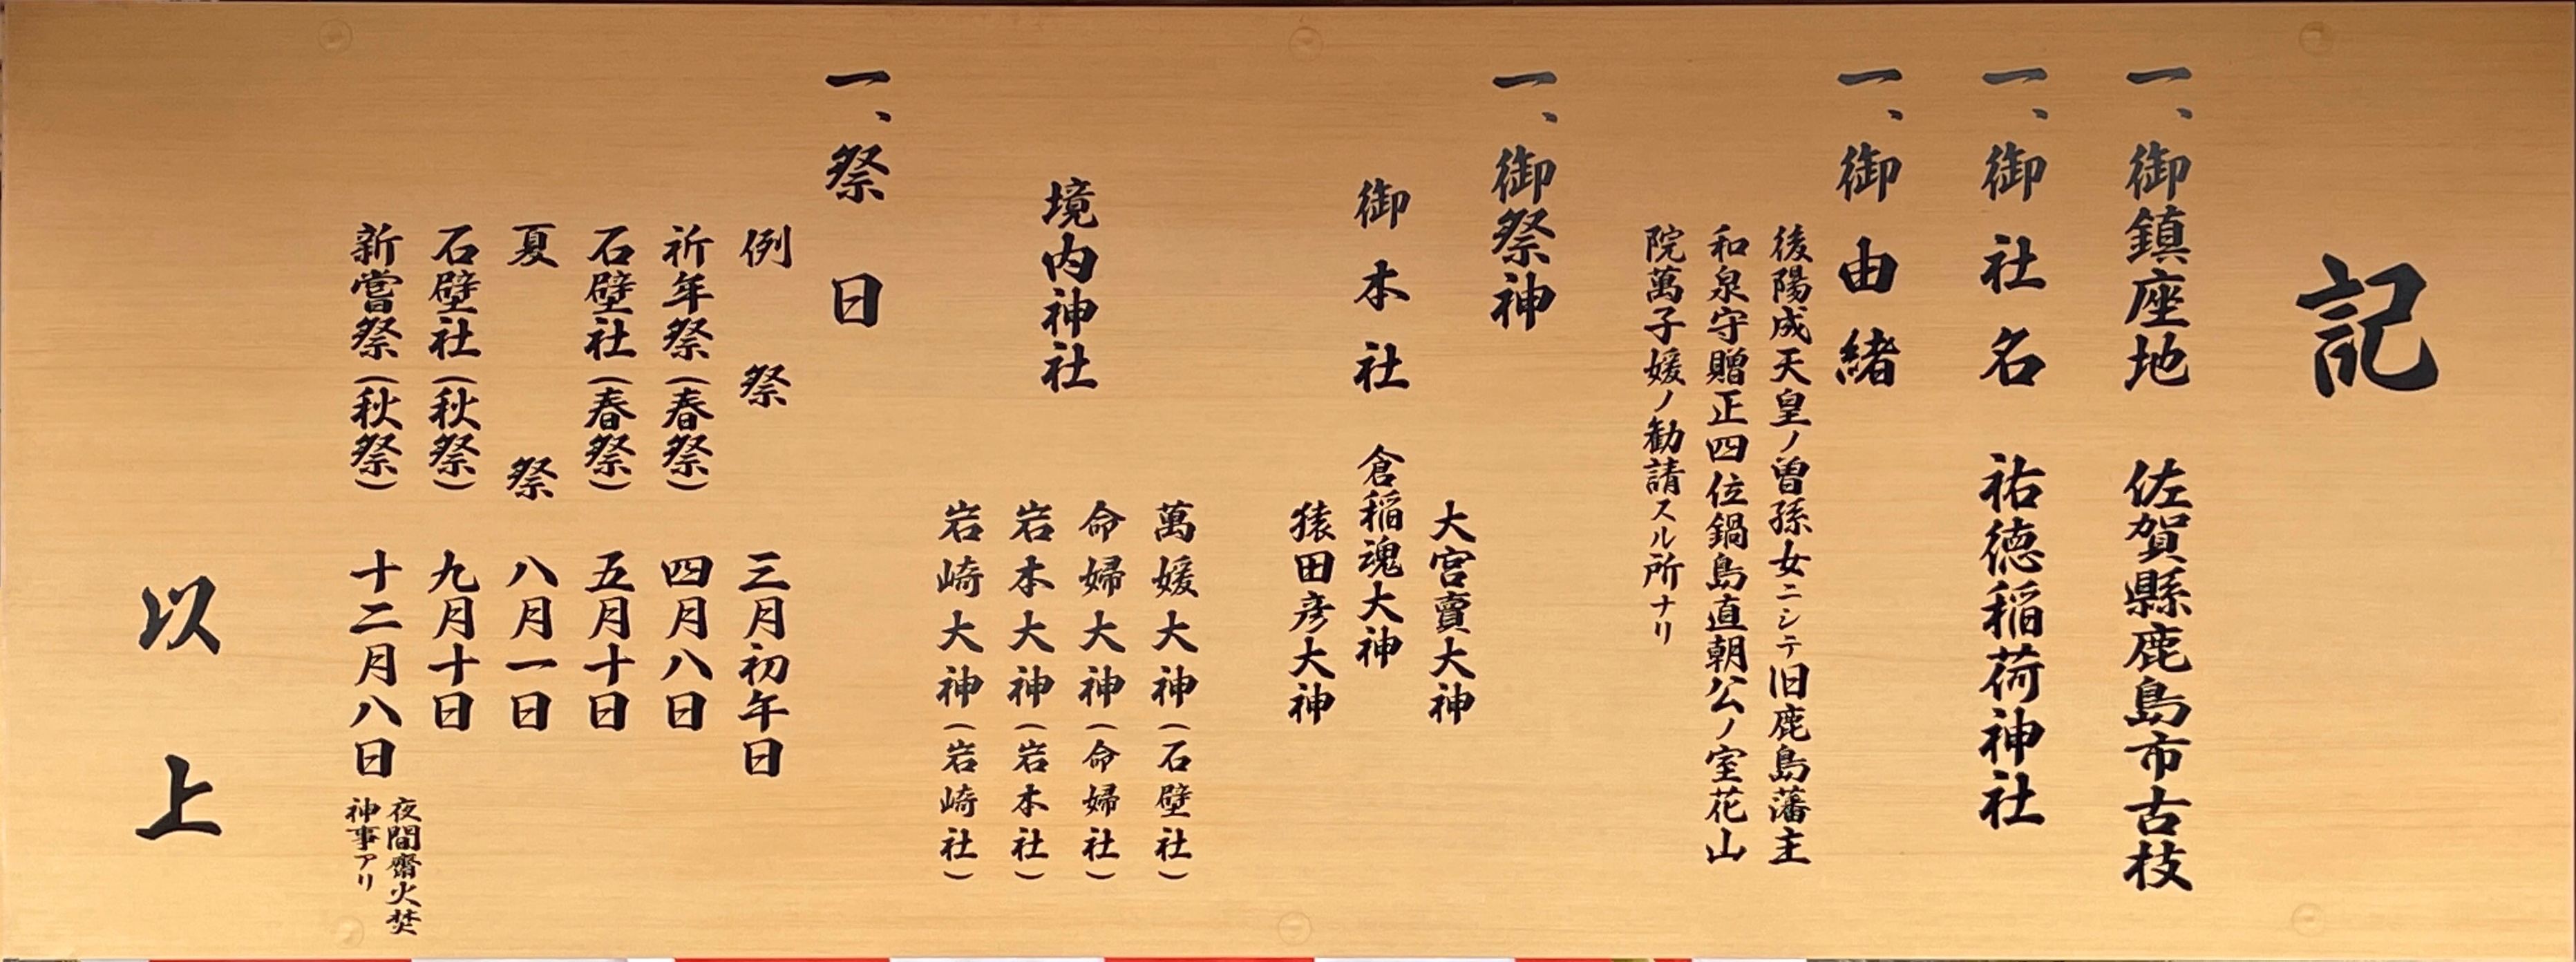 記
一、御鎮座地 佐賀縣鹿島市古枝
一、御社名 祐徳稲荷神社
一、御由緒
後陽成天皇ノ曽孫女ニシテ旧鹿島藩主
和泉守贈正四位鍋島直朝公ノ室花山
院萬子媛ノ勧請スル所ナリ
一、御祭神
大宮賣大神
御本社 倉稲魂大神
猿田彦大神
境内神社
萬媛大神(石壁社)
命婦大神(命婦社)
岩本大神(岩本社)
岩崎大神(岩崎社)
一、祭日
例祭 三月初午日
祈年祭(春祭) 四月八日
石壁社(春祭) 五月十日
夏祭 八月一日
石壁社(秋祭) 九月十日
新嘗祭(秋祭) 十二月八日
夜間齋火焚
神事アリ
以上